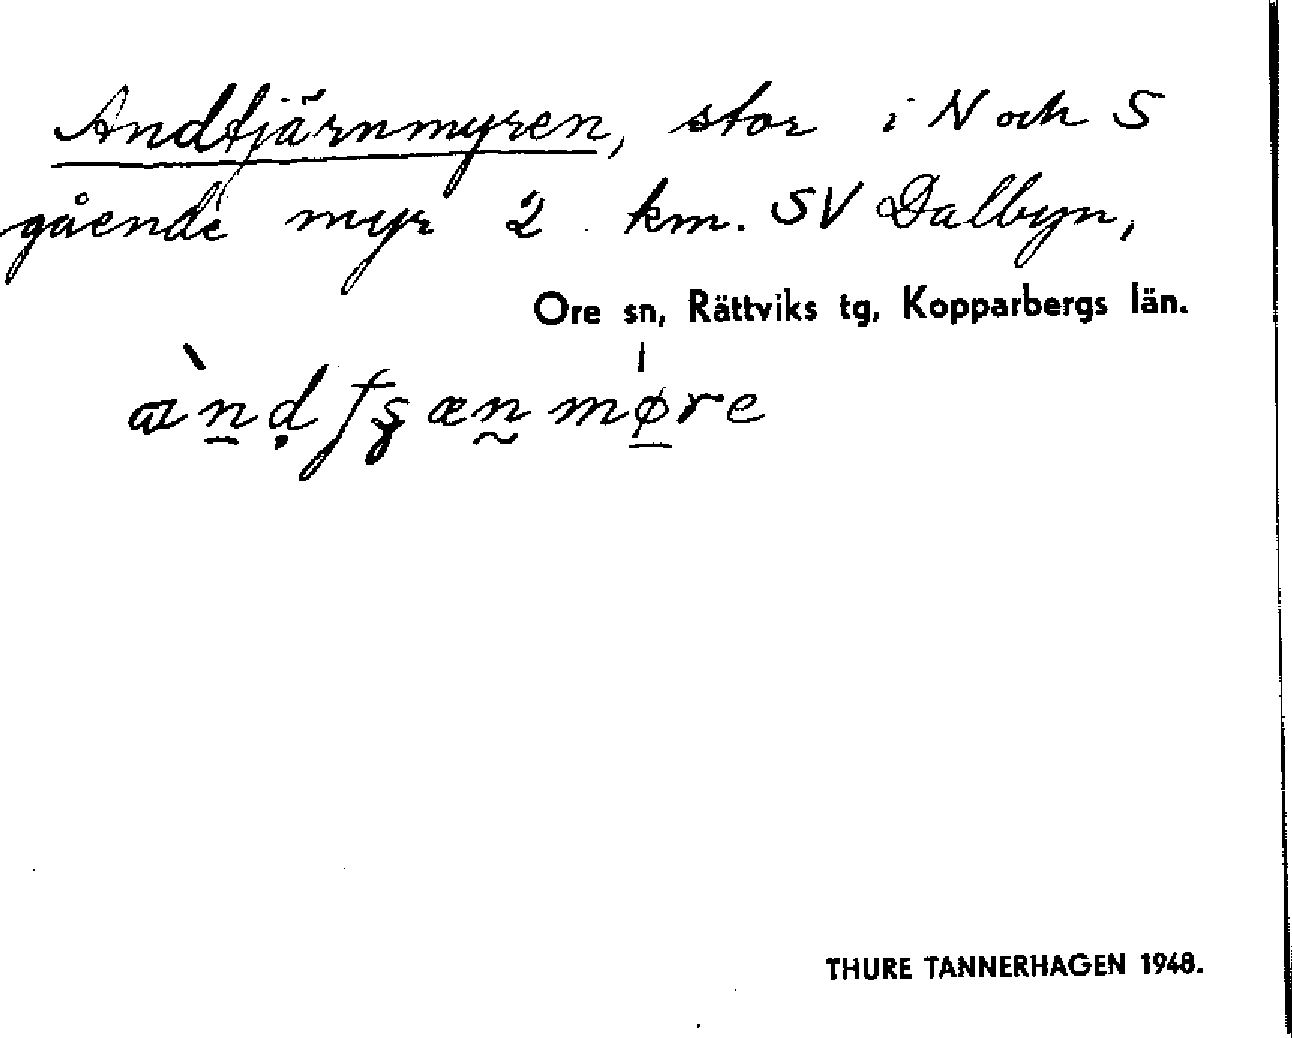 Andtjärnmyren, stor i N och S
gående myr 2 km. SV Dalbyn,
Ore sn, Rättviks tg, Kopparbergs län.
THURE TANNERHAGEN 1948.